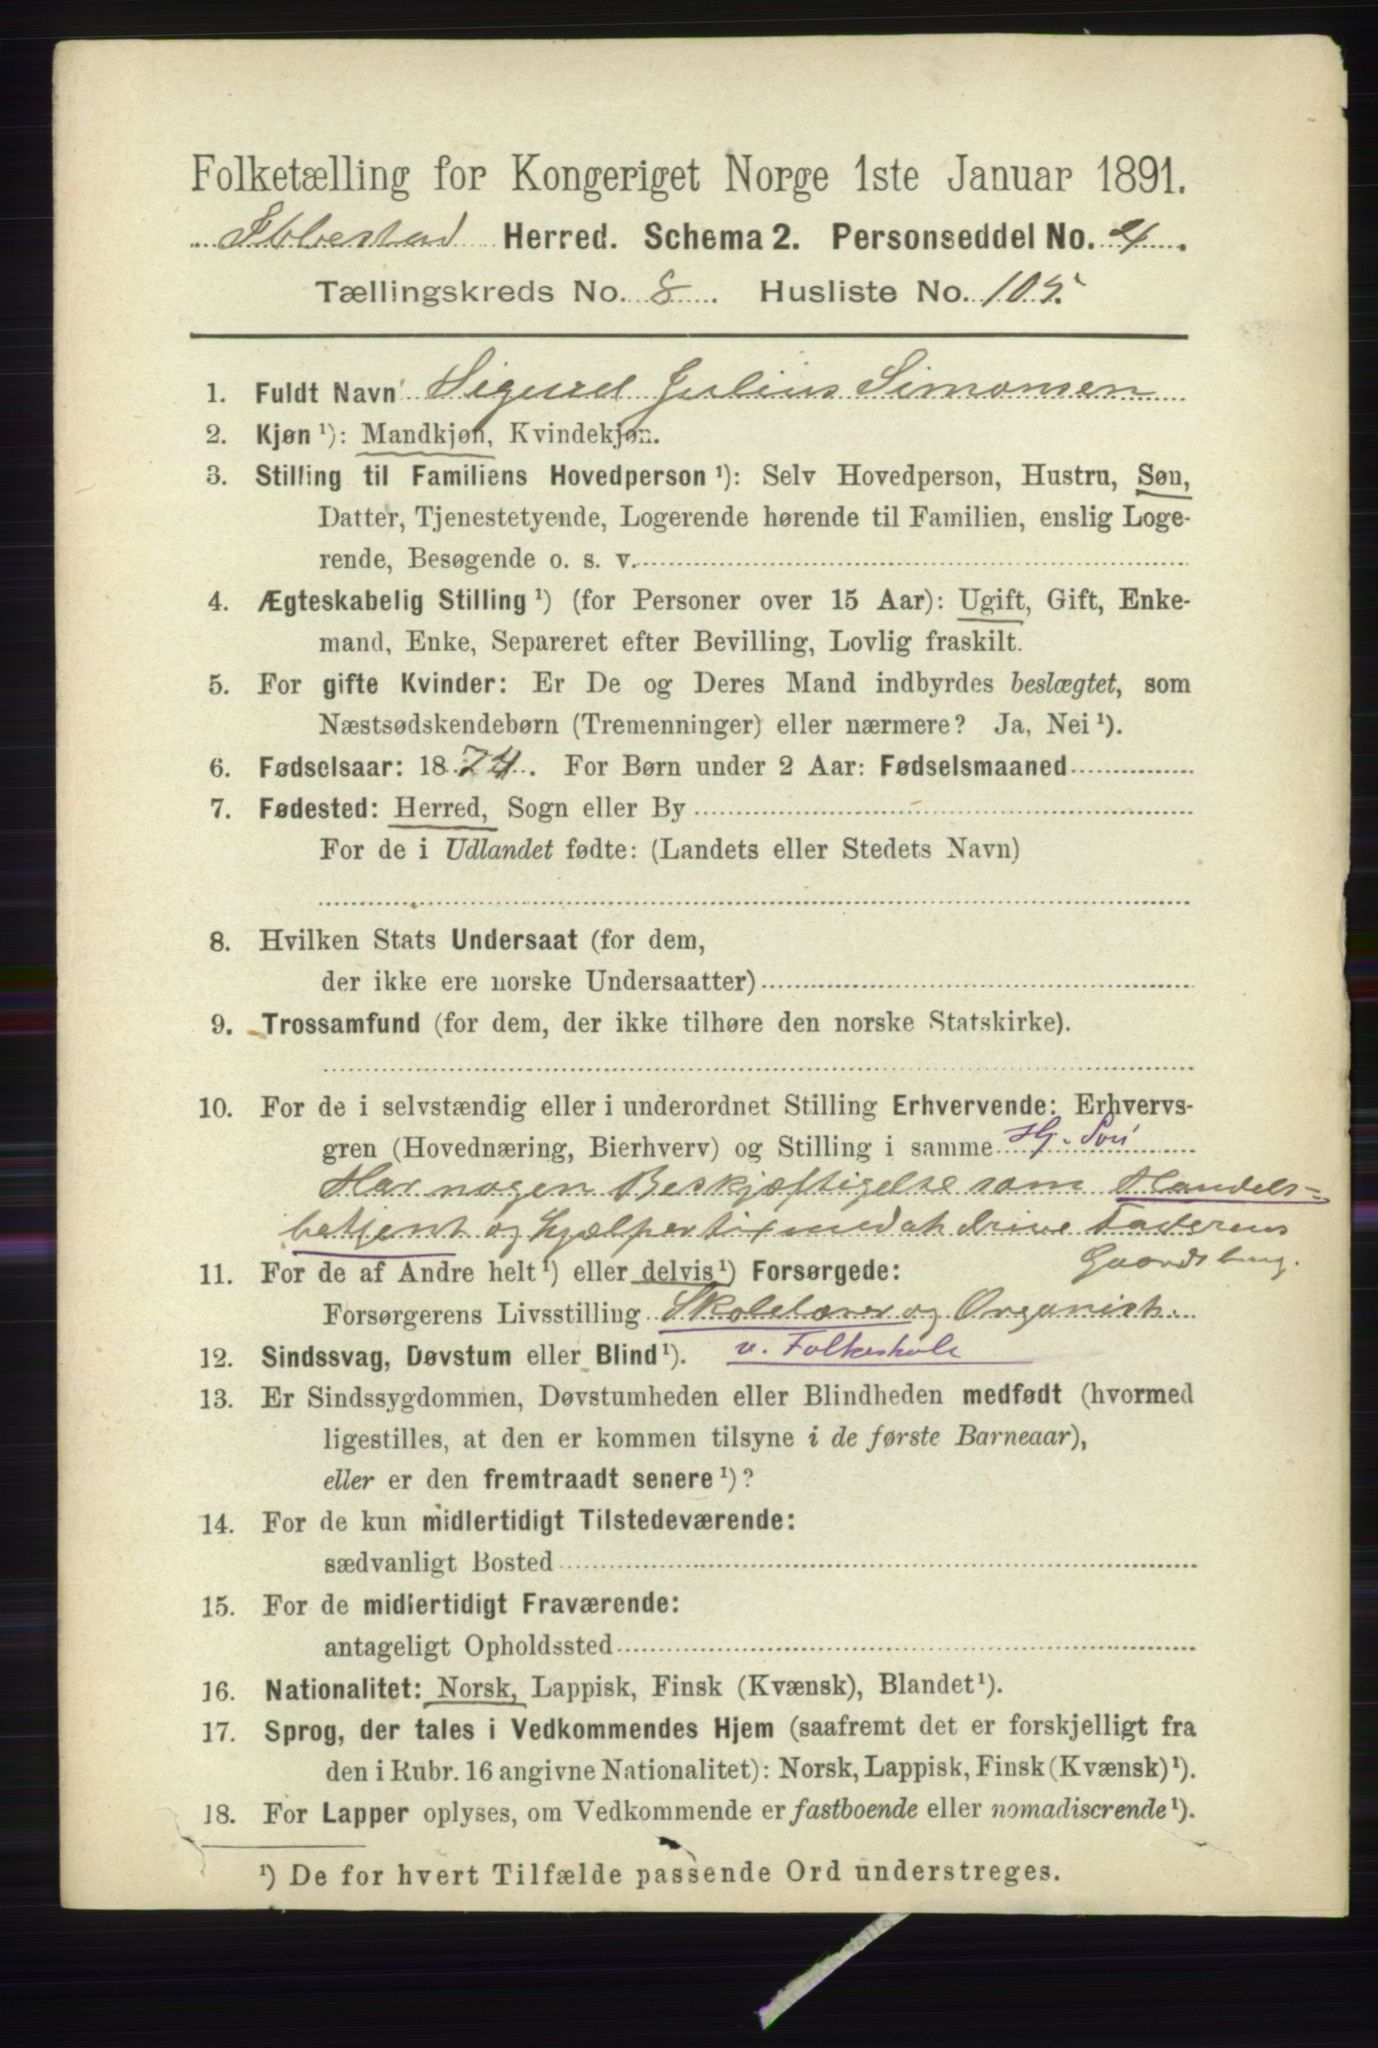 Folketælling for Kongeriget Norge 1ste Januar 1891.
Ibbestad Herred. Schema 2. Personseddel No. 4.
Tællingskreds No. 8. Husliste No. 105.
1. Fuldt Navn Sigurd Julius Simonsen
2. Kjøn ¹): Mandkjøn, Kvindekjøn.
3. Stilling til Familiens Hovedperson ¹): Selv Hovedperson, Hustru, Søn,
Datter, Tjenestetyende, Logerende hørende til Familien, enslig Loge-
rende, Besøgende o. s. v.
4. Ægteskabelig Stilling ¹) (for Personer over 15 Aar): Ugift, Gift, Enke-
mand, Enke, Separeret efter Bevilling, Lovlig fraskilt.
5. For gifte Kvinder: Er De og Deres Mand indbyrdes beslægtet, som
Næstsødskendebørn (Tremenninger) eller nærmere? Ja, Nei ¹).
6. Fødselsaar: 1874. For Børn under 2 Aar: Fødselsmaaned
7. Fødested: Herred, Sogn eller By
For de i Udlandet fødte: (Landets eller Stedets Navn)
8. Hvilken Stats Undersaat (for dem,
der ikke ere norske Undersaatter)
9. Trossamfund (for dem, der ikke tilhøre den norske Statskirke).
10. For de i selvstændig eller i underordnet Stilling Erhvervende: Erhvervs-
gren (Hovednæring, Bierhverv) og Stilling i samme Hj. Søn
Har nogen Beskjæftigelse som Handels-
betjent og hjælper til med at drive Faderens
Gaardsbrug.
11. For de af Andre helt ¹) eller delvis ¹) Forsørgede:
Forsørgerens Livsstilling Skolelærer og Organist.
12. Sindssvag, Døvstum eller Blind ¹). v. Folkeskole
13. Er Sindssygdommen, Døvstumheden eller Blindheden medfødt (hvormed
ligestilles, at den er kommen tilsyne i de første Barneaar),
eller er den fremtraadt senere ¹)?
14. For de kun midlertidigt Tilstedeværende:
sædvanligt Bosted
15. For de midlertidigt Fraværende:
antageligt Opholdssted
16. Nationalitet: Norsk, Lappisk, Finsk (Kvænsk), Blandet ¹).
17. Sprog, der tales i Vedkommendes Hjem (saafremt det er forskjelligt fra
den i Rubr. 16 angivne Nationalitet): Norsk, Lappisk, Finsk (Kvænsk) ¹).
18. For Lapper oplyses, om Vedkommende er fastboende eller nomadiserende ¹).
¹) De for hvert Tilfælde passende Ord understreges.